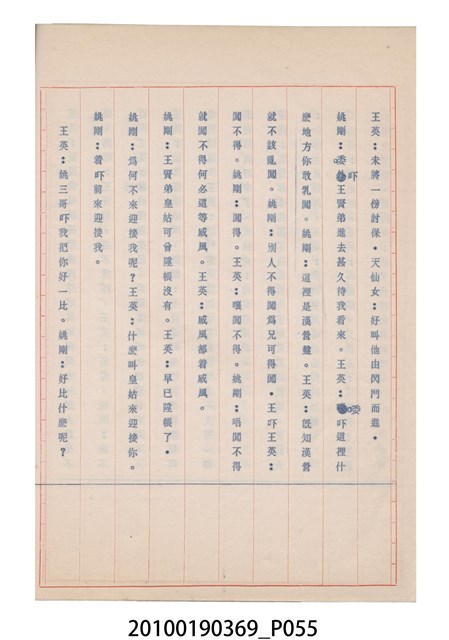 王英：未將一傍討保．天仙女：好叫他由閃門而進．
姚剛：喽吓王賢弟進去甚久待我看來。王英：喽吓這裡什
麽地方你敢乳闖。姚剛：這裡是漢營盤。王英：既知漢營
就不該亂闖。姚剛：別人不得闖爲兄可得闖．王吓王英：
闖不得。姚剛：闖得。王英：嚷闖不得。姚剛：唔闖不得
就闖不得何必這等威風。王英：威風都着威風。
姚剛：王賢弟皇姑可曾陞帳沒有。王英：早已陞帳了．
姚剛：爲何不來迎接我呢？王英：什麽叫皇姑來迎接你。
姚剛：着吓前來迎接我。
王英：姚三哥吓我把你好一比。姚剛：好比什麽呢？
20100190369_P055